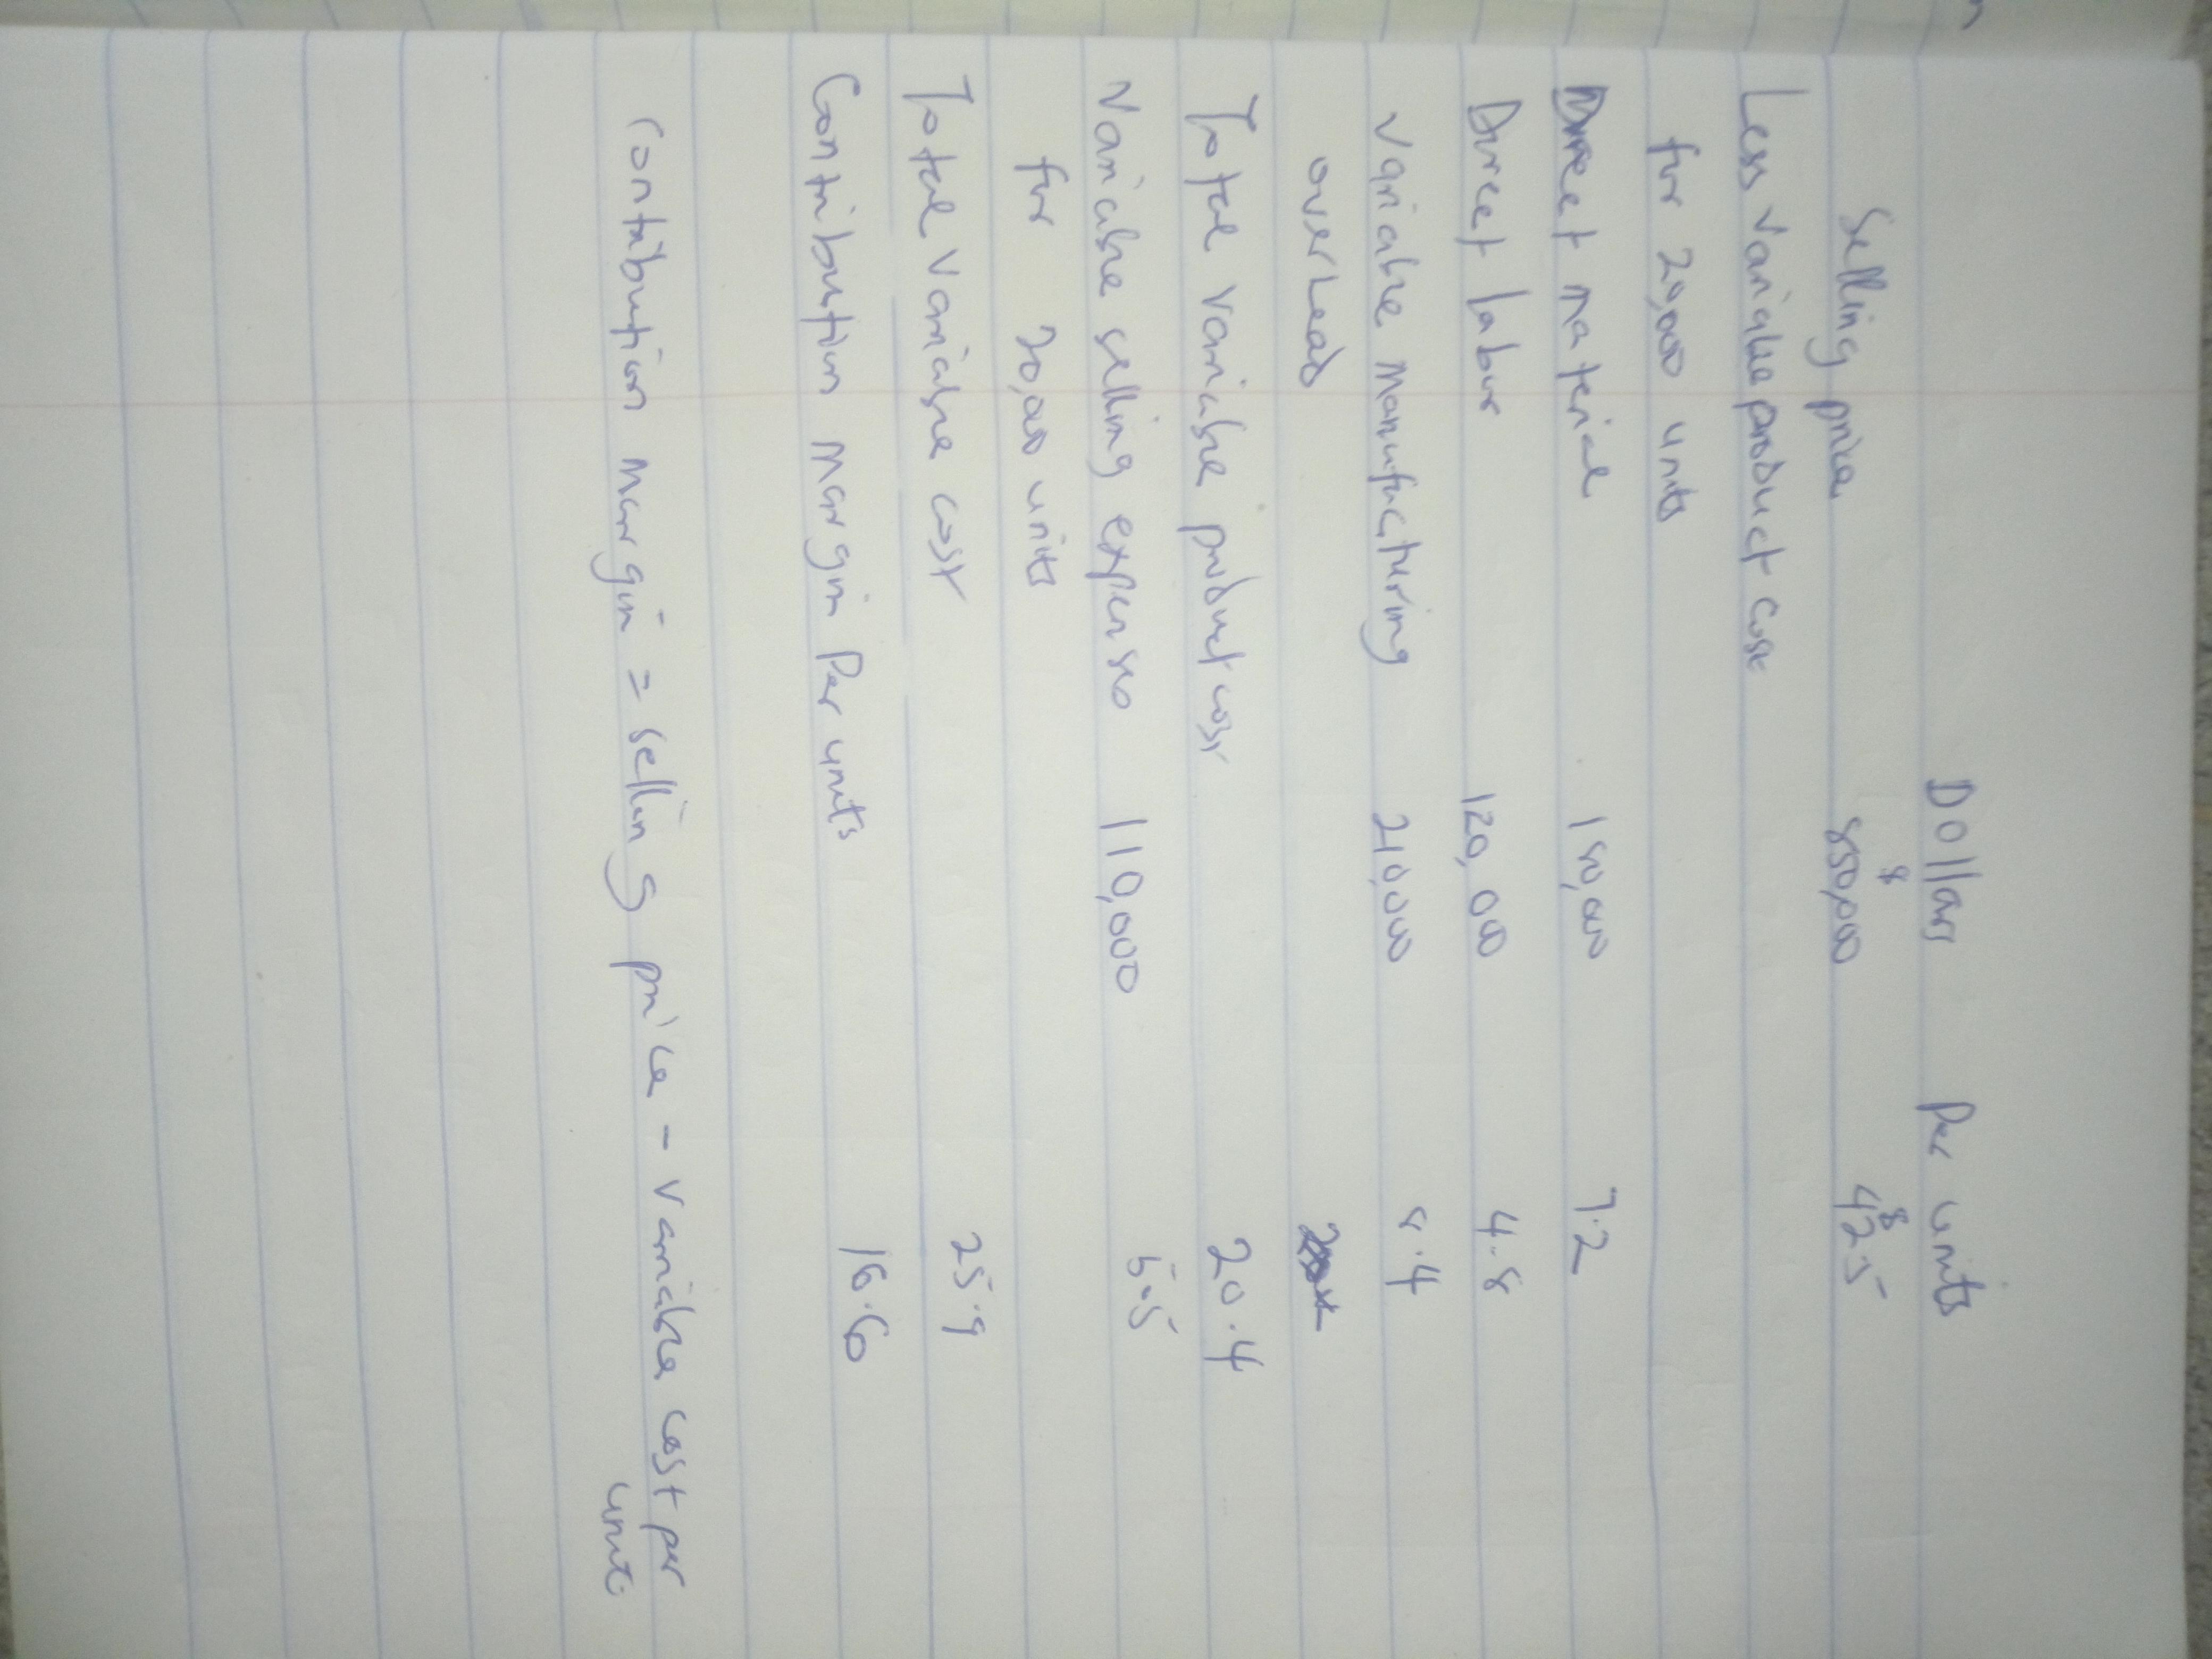 Dollars Per units
$ $
Selling price 850,000 42.5
Less Variable product cost
for 20,000 units
Direct material 180,000 7.2
Direct labur 120,000 4.8
Variable manufacturing 210,000 8.4
overhead
Total variable product cost 20.4
Variable selling expense 110,000 5.5
for 20,000 units
Total variable cost 25.9
Contribution margin Per units 16.6
Contribution margin = selling price - variable cost per
unit